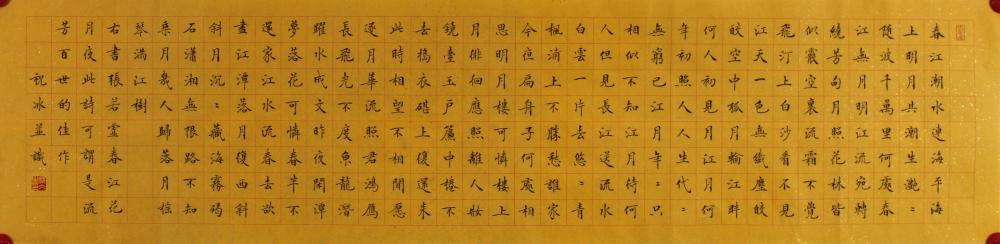 春江潮水連海平海
上明月共潮生灩〻
隨波千萬里何處春
江無月明江流宛轉
繞芳甸月照花林皆
似霰空裏流霜不覺
飛汀上白沙看不見
江天一色無纖塵皎
皎空中孤月輪江畔
何人初見月江月何
年初照人人生代〻
無窮已江月年〻只
相似不知江月待何
人但見長江送流水
白雲一片去悠〻青
楓浦上不勝愁誰家
今夜扁舟子何處相
思明月樓可憐樓上
月徘徊應照離人妝
鏡臺玉戶簾中捲不
去搗衣砧上復還來
此時相望不相聞願
逐月華流照君鴻雁
長飛光不度魚龍潛
躍水成文昨夜閑潭
夢落花可憐春半不
還家江水流春去欲
盡江潭落月復西斜
斜月沉〻藏海霧碣
石瀟湘無限路不知
乘月幾人歸落月搖
琴滿江樹
右書張若虛春江花
月夜此詩可謂是流
芳百世的佳作
祝冰並識